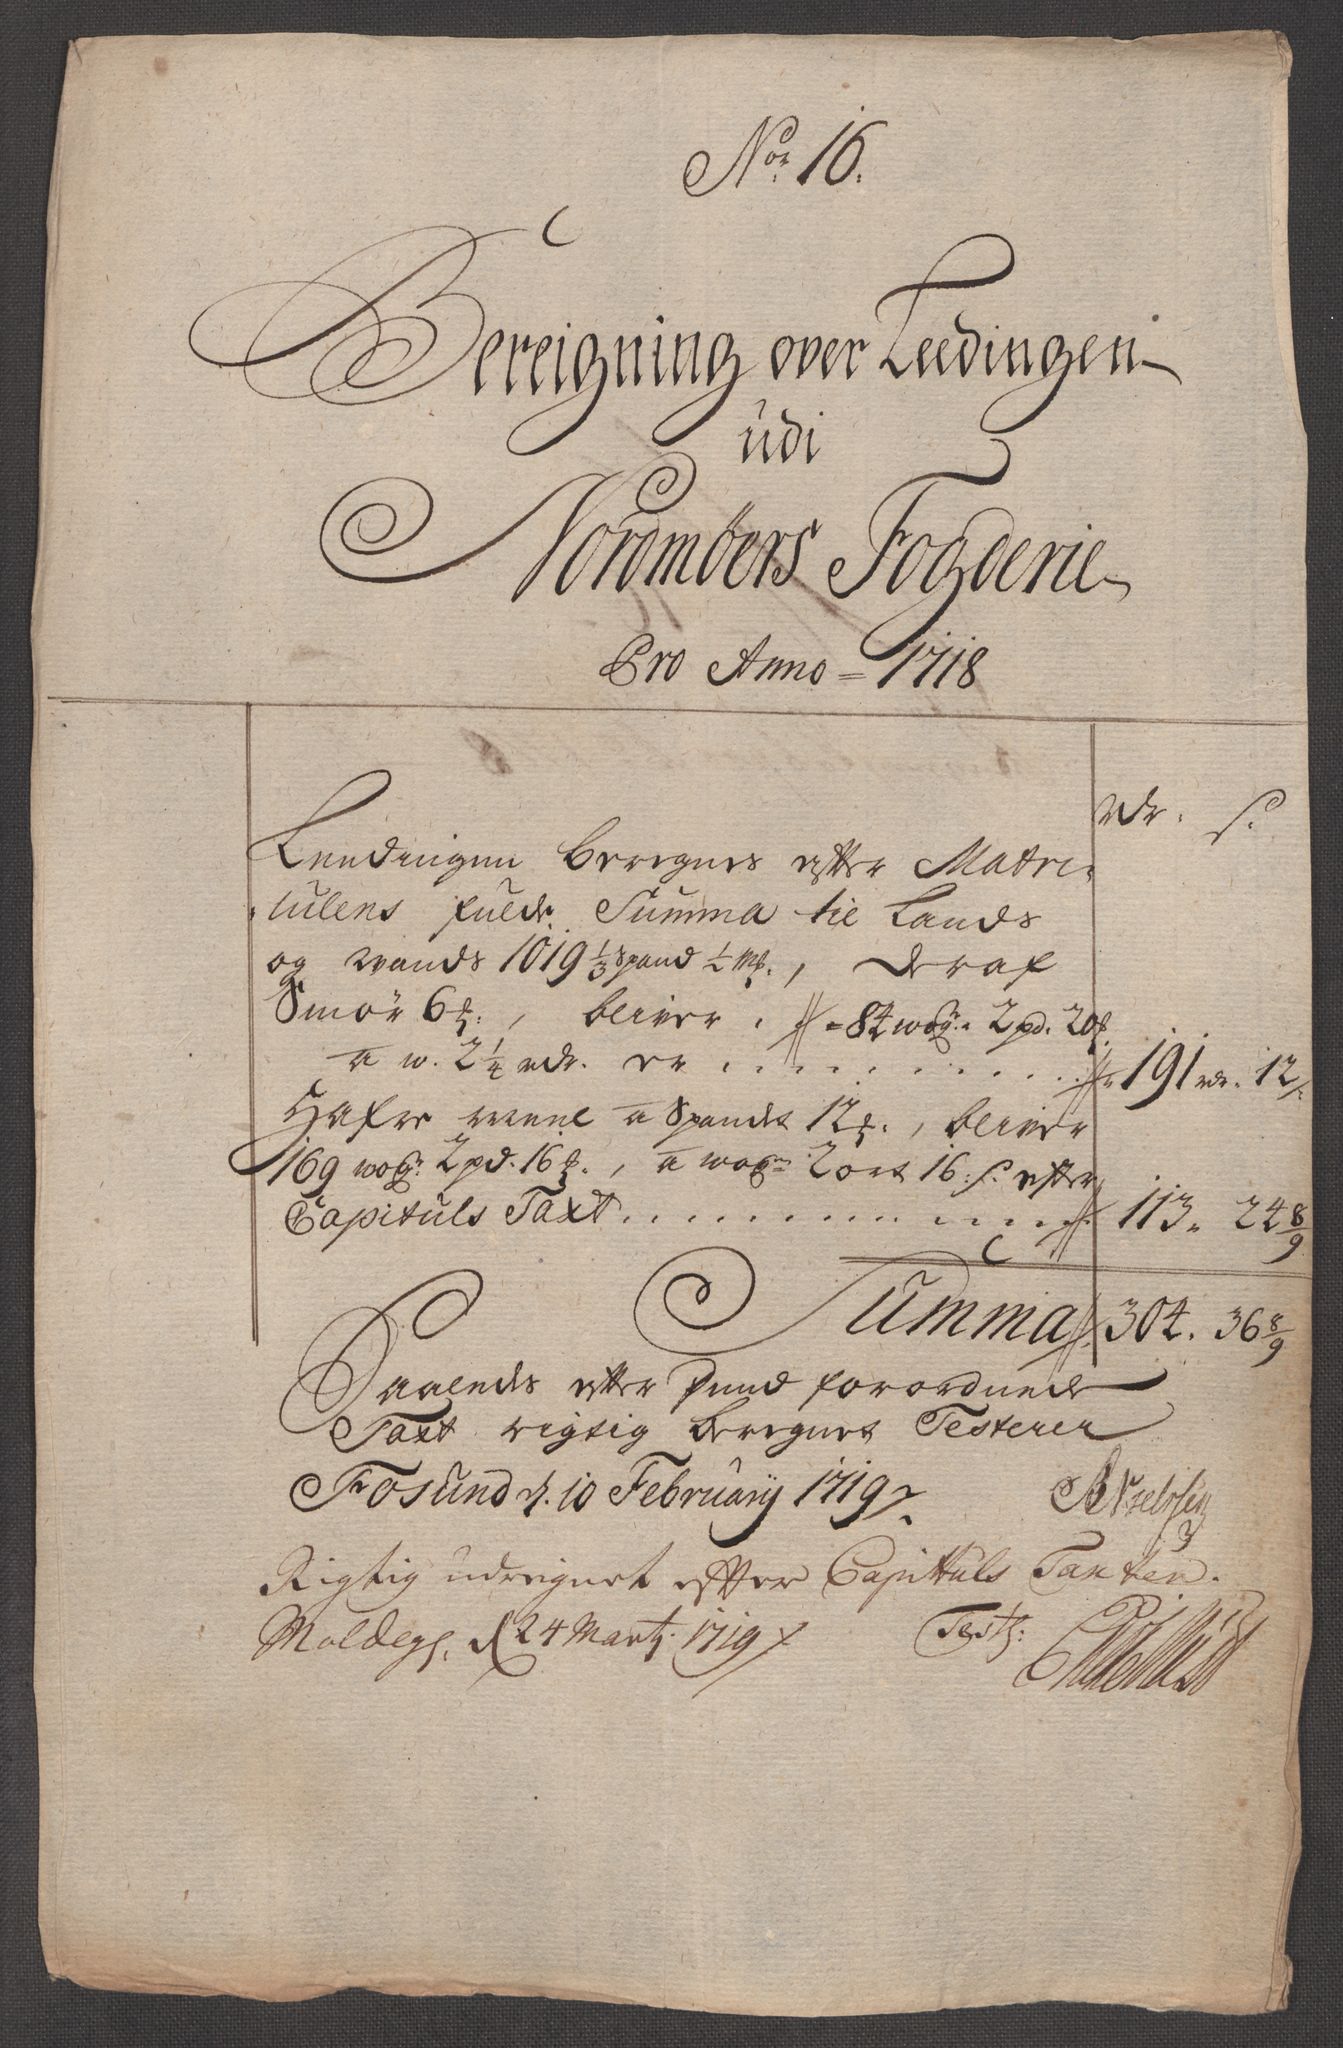 No: 16.
Bereigning over Leedingen
udi
Nordmøers Fogderie
Pro Anno = 1718
rdr. s.
Leedingen beregnes efter Matri-
culens fulde Summa til Lands
og wands 1019 1/3 Spand 1/2 mk., deraf
Smör 6 ℔., bliver. 84 wog. 2 pd. 20 ℔
a w. 2 1/4 rdr. er . . . . . . . . . . 191 rdr. 12
Hafre meel a Spandet 12 ℔., bliver
169 wog: 2 pd. 16 ℔., a wog 2 ort 16. s. efter
Capituls Taxt . . . . . . . . . . . . 113. 24 8/9
Summa 304. 36 8/9
Saaledes efter forordnede
Taxt rigtig beregnet Testerer
Fosund d. 10 February 1719
Rigtig udreignet efter Capituls Taxten.
Moldeg. d 24 Marty. 1719 Test: